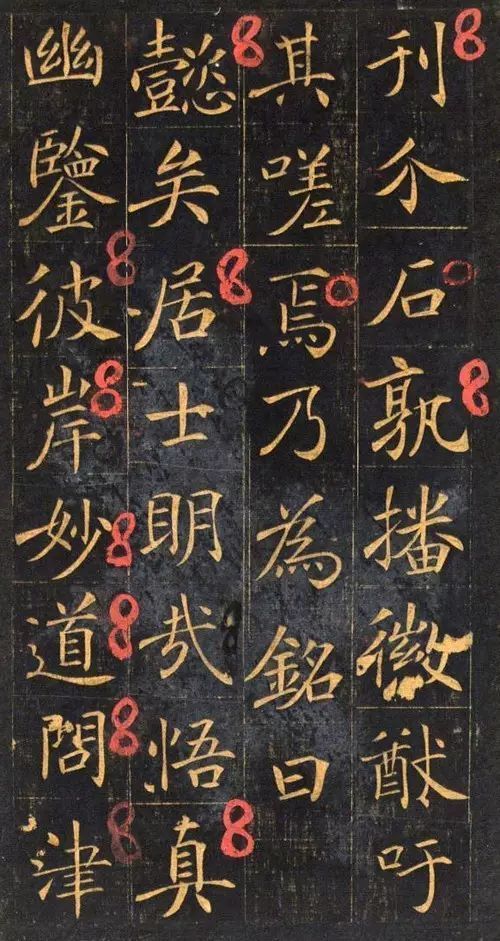 刊介石孰播徽猷吁
其嗟焉乃為銘曰
懿矣居士明哉悟真
幽鑒彼岸妙道問津